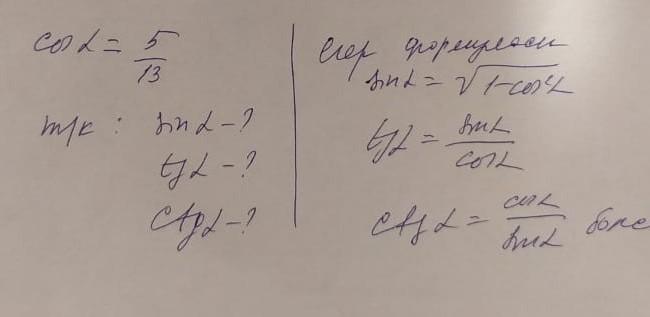 cos α = 5/13
т/к : sin α – ?
tg α – ?
ctg α – ?
Егер формуласы
sin α = √(1-cos²α)
tg α = sin α / cos α
ctg α = cos α / sin α болс